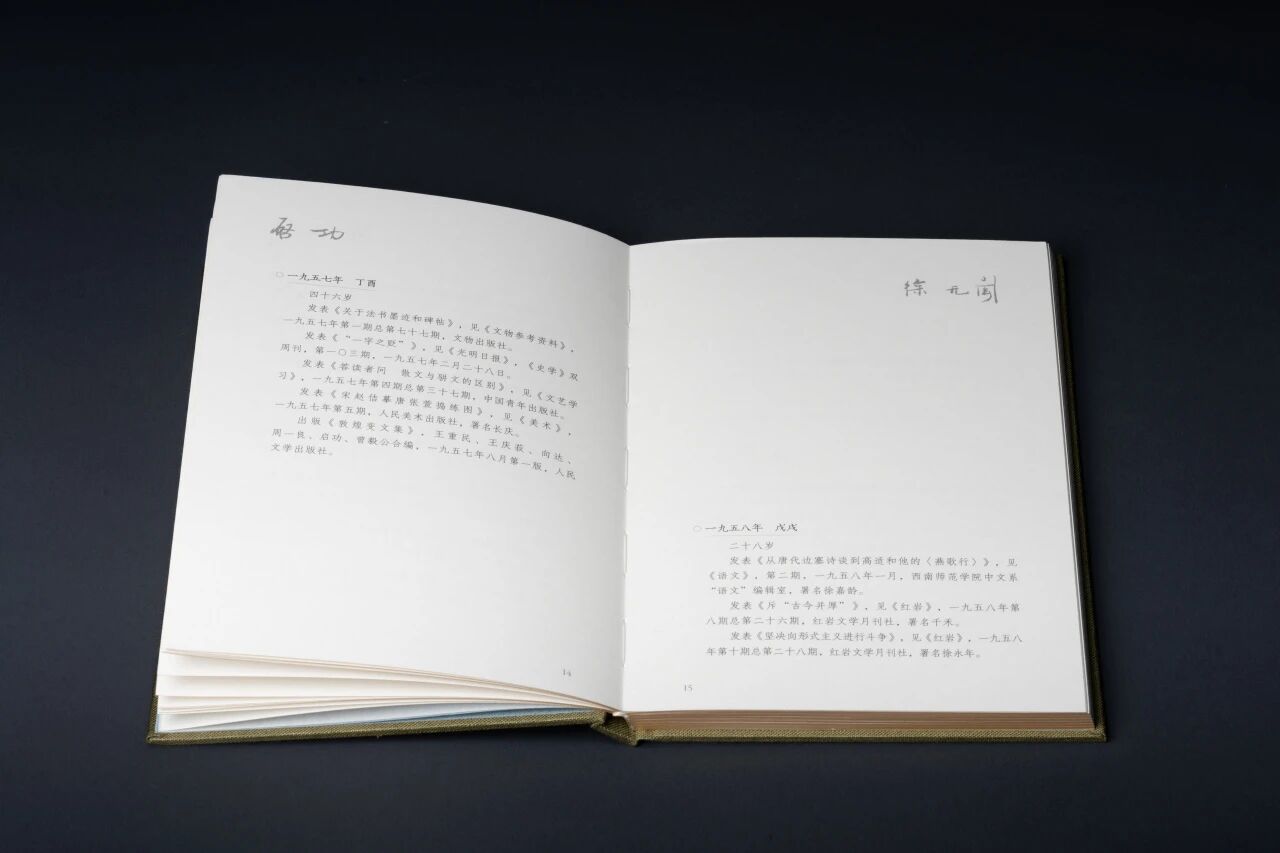 启功
○一九五七年 丁酉
四十六岁
发表《关于法书墨迹和碑帖》，见《文物参考资料》，
一九五七年第一期总第七十七期，文物出版社。
发表《“一字之贬”》，见《光明日报》，《史学》双
周刊，第一〇三期，一九五七年二月二十八日。
发表《答读者问 散文与骈文的区别》，见《文艺学
习》，一九五七年第四期总第三十七期，中国青年出版社。
发表《宋赵佶摹唐张萱捣练图》，见《美术》，
一九五七年第五期，人民美术出版社，署名长庆。
出版《敦煌变文集》，王重民、王庆菽、向达、
周一良、启功、曾毅公合编，一九五七年八月第一版，人民
文学出版社。
14
徐无闻
○一九五八年 戊戌
二十八岁
发表《从唐代边塞诗谈到高适和他的〈燕歌行〉》，见
《语文》，第二期，一九五八年一月，西南师范学院中文系
“语文”编辑室，署名徐嘉龄。
发表《斥“古今并厚”》，见《红岩》，一九五八年第
八期总第二十六期，红岩文学月刊社，署名千禾。
发表《坚决向形式主义进行斗争》，见《红岩》，一九五八
年第十期总第二十八期，红岩文学月刊社，署名徐永年。
15